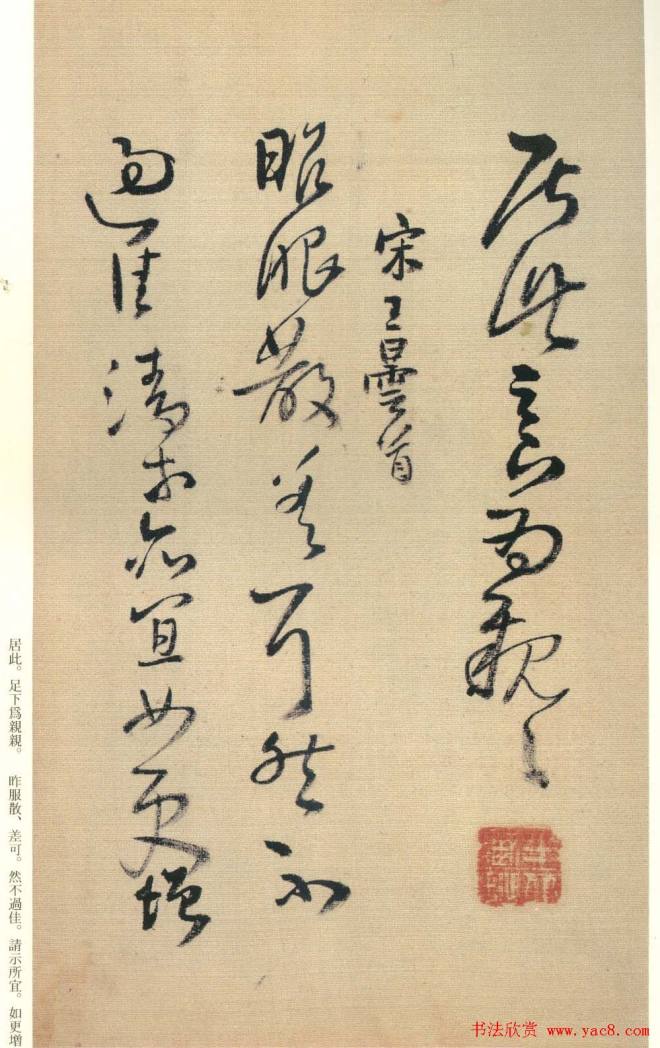 居此足下為親〻
宋王曇首
昨服散差可然不
過佳請示所宜如更增
居此。足下爲親親。 昨服散、差可。然不過佳。請示所宜。如更增
书法欣赏 www.yac8.com